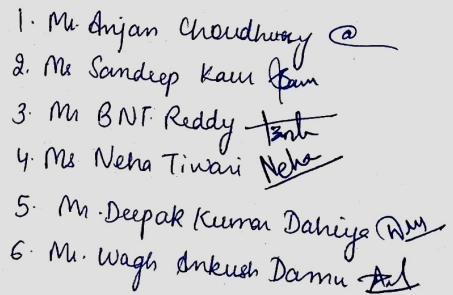 1. Mr. Anjan Choudhury
2. Ms Sandeep Kaur
3. Mr BNT. Reddy
4. Ms Neha Tiwari Neha
5. Mr. Deepak Kumar Dahiya
6. Mr. Wagh Ankush Damu